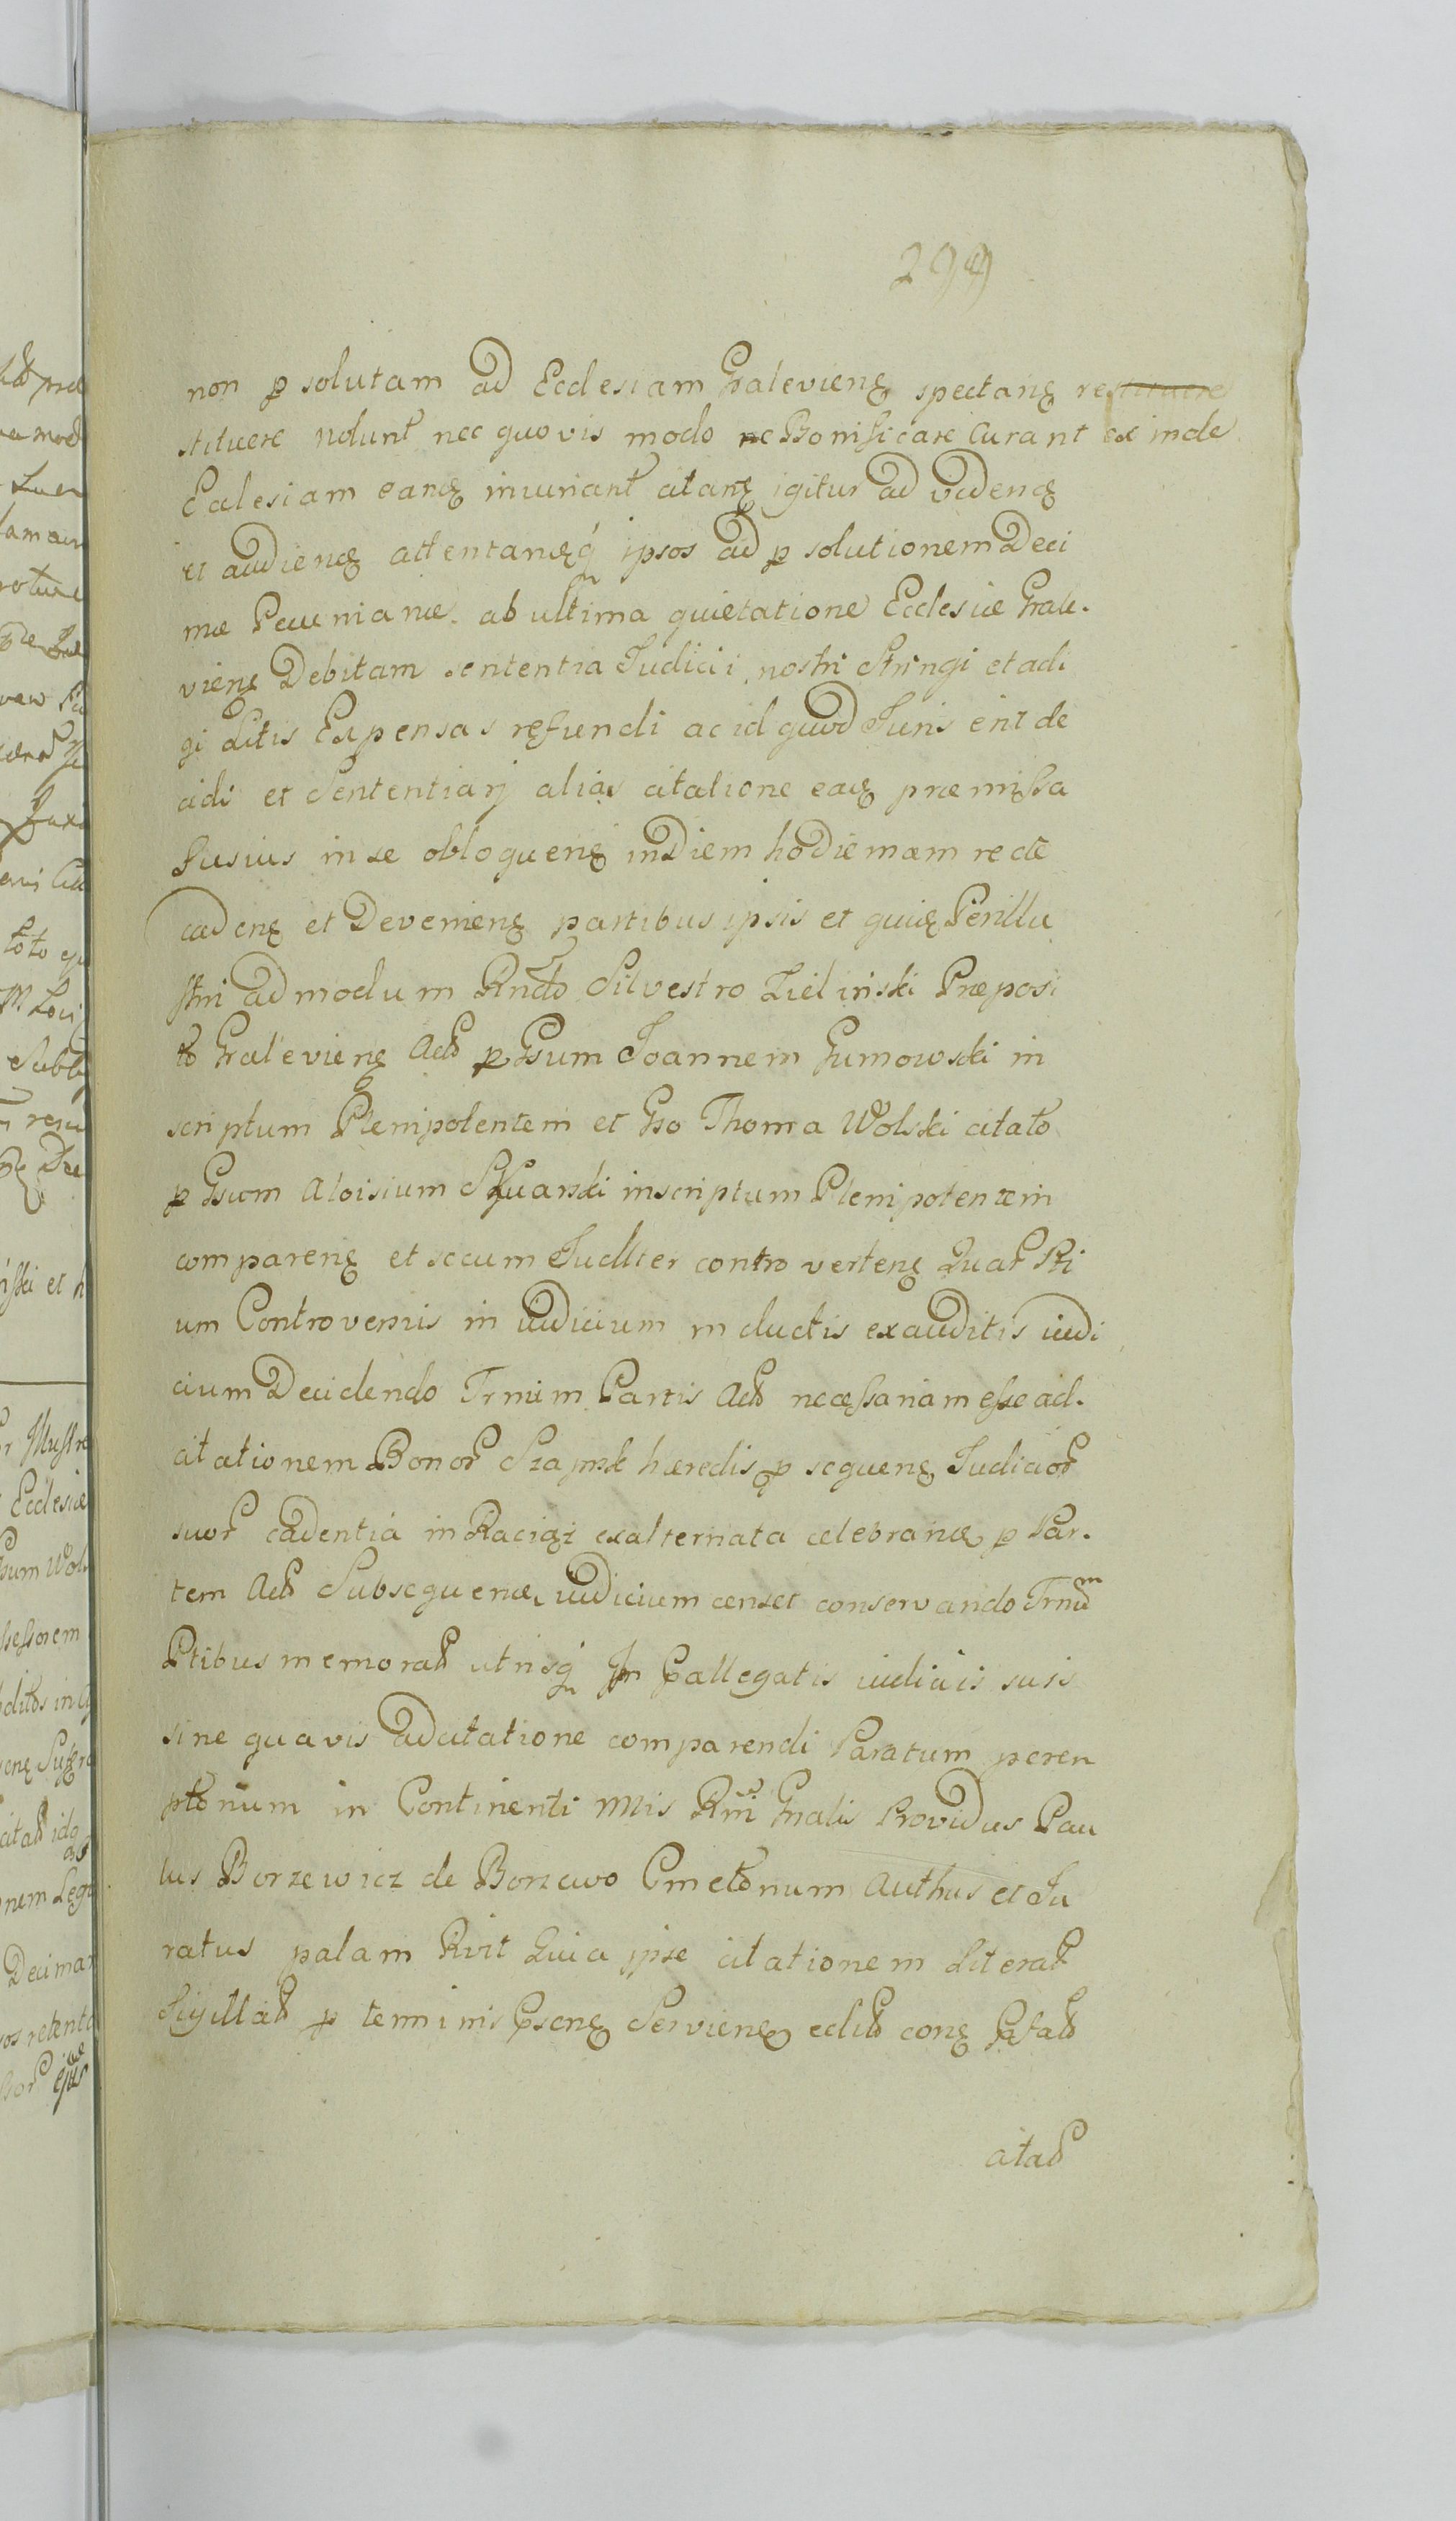 299
non p solutam ad Ecclesiam Gralevienę spectanę restituere
stituere nolunt nec quovis modo neBonificare Curant ex inde
Eclesiam eandę iniuriant citanę igitur ad videndę
et audiendę attentandęq ipsos ad p solutionem Deci
mæ Pecuniariæ ab ultima quietatione Ecclesiæ Grale.
vienę Debitam sententia Judicii nostri Stringi et adi
gi Litis Expensas refundi ac id quod Juris erit de
cidi et Sententiarj alias citatione eadę præmissa
fusius in se obloquenę in Diem hodiernam recte
cadenę et Devenienę partibus ipsis et quidę Perillu
stri admodum Rndo Silvestro Zieliński Præposi
to Gralevienę Acto p Gsum Joannem Gumowski in
scriptum Plenipotentem et Gso Thoma Wolski citato
p Gsum Aloisium Skwarski inscriptum Plenipotentem
comparenę et secum Judlter contro vertenę Quar Pti
um Controversiis in iudicium inductis exauditis iudi
cium Decidendo Trnum Partis Acto necessariam esse ad.
citationem Bonor hæredis p sequenę Judicior
suor cadentia in Raciąż exalternata celebrandę p Par.
tem Acto Subsequendę iudicium censet conservando Trnum
Ptibus memorat utrisq In Pallegatis iudiciis suis
sine quavis adcitatione comparendi Paratum peren
ptorium in Continenti Mris Rmi Gnalis Providus Pau
lus Borzewicz de Borzewo Cmetonum Authus et Ju
ratus palam Rvit Quia ipse citationem Literat
Sigillat p terminis Psenę Servienę edit conę
citat